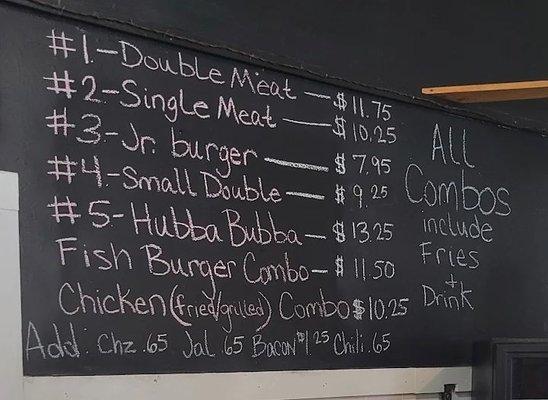 #1.-Double Meat - $11.75
#2-Single Meat - $10.25
#3-Jr. burger - $7.95
#4-Small Double - $9.25
#5-Hubba Bubba - $13.25
Fish Burger Combo - $11.50
Chicken (fried/grilled) Combo $10.25
Add: Chz .65 Jal .65 Bacon $1.25 Chili .65
All
Combos
include
Fries
+
Drink